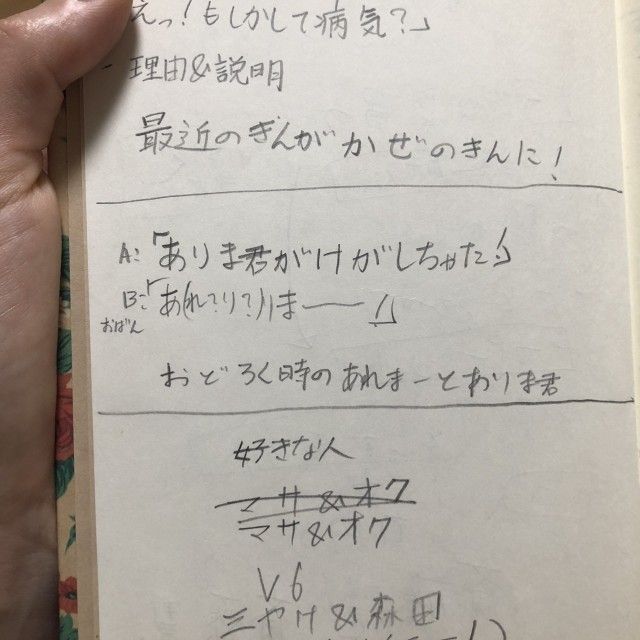 えっ!もしかして病気?」
- 理由&説明
最近のぎんが かぜのきんに!
A:「ありま君がけがしちゃた!」
B:「あ(れ?り?)ま──!」
おばん
おどろく時のあれまーとありま君
好きな人
マサ&オク
マサ&オク
V6
三やけ&森田